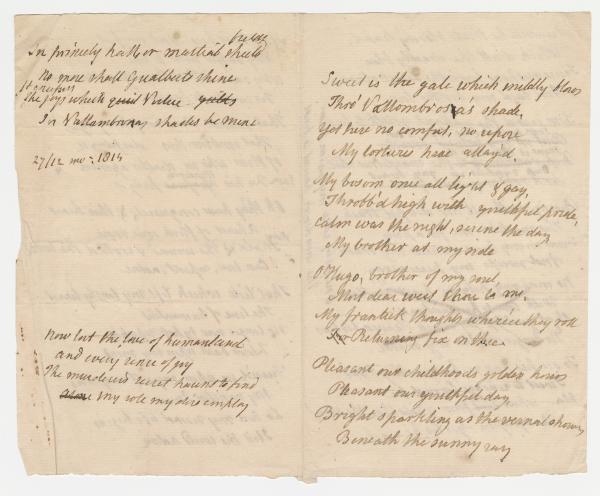 breeze
In princely hall or martial shield
No more shall Gualberts shine
The joys which quiet Virtue yields
In Vallambrosas shades be mine
27/12 mo: 1814
Now lost the love of humankind
and every sense of joy
The murderer's secret haunts to find
alone my sole my dire employ
Sweet is the gale which mildly blows
Thro' Vallombrosa's shade,
Yet here no comfort, no repose
My tortures have allay'd.
My bosom once all light & gay,
Throbb'd high with youthful pride,
Calm was the night, serene the day
My brother at my side
O Hugo, brother of my soul,
Most dear wert thou to me.
My frantick thoughts where'er they roll
Returning fix on thee
Pleasant our childhoods golden hours
Pleasant our youthful day
Bright sparkling as the vernal showers
Beneath the sunny ray